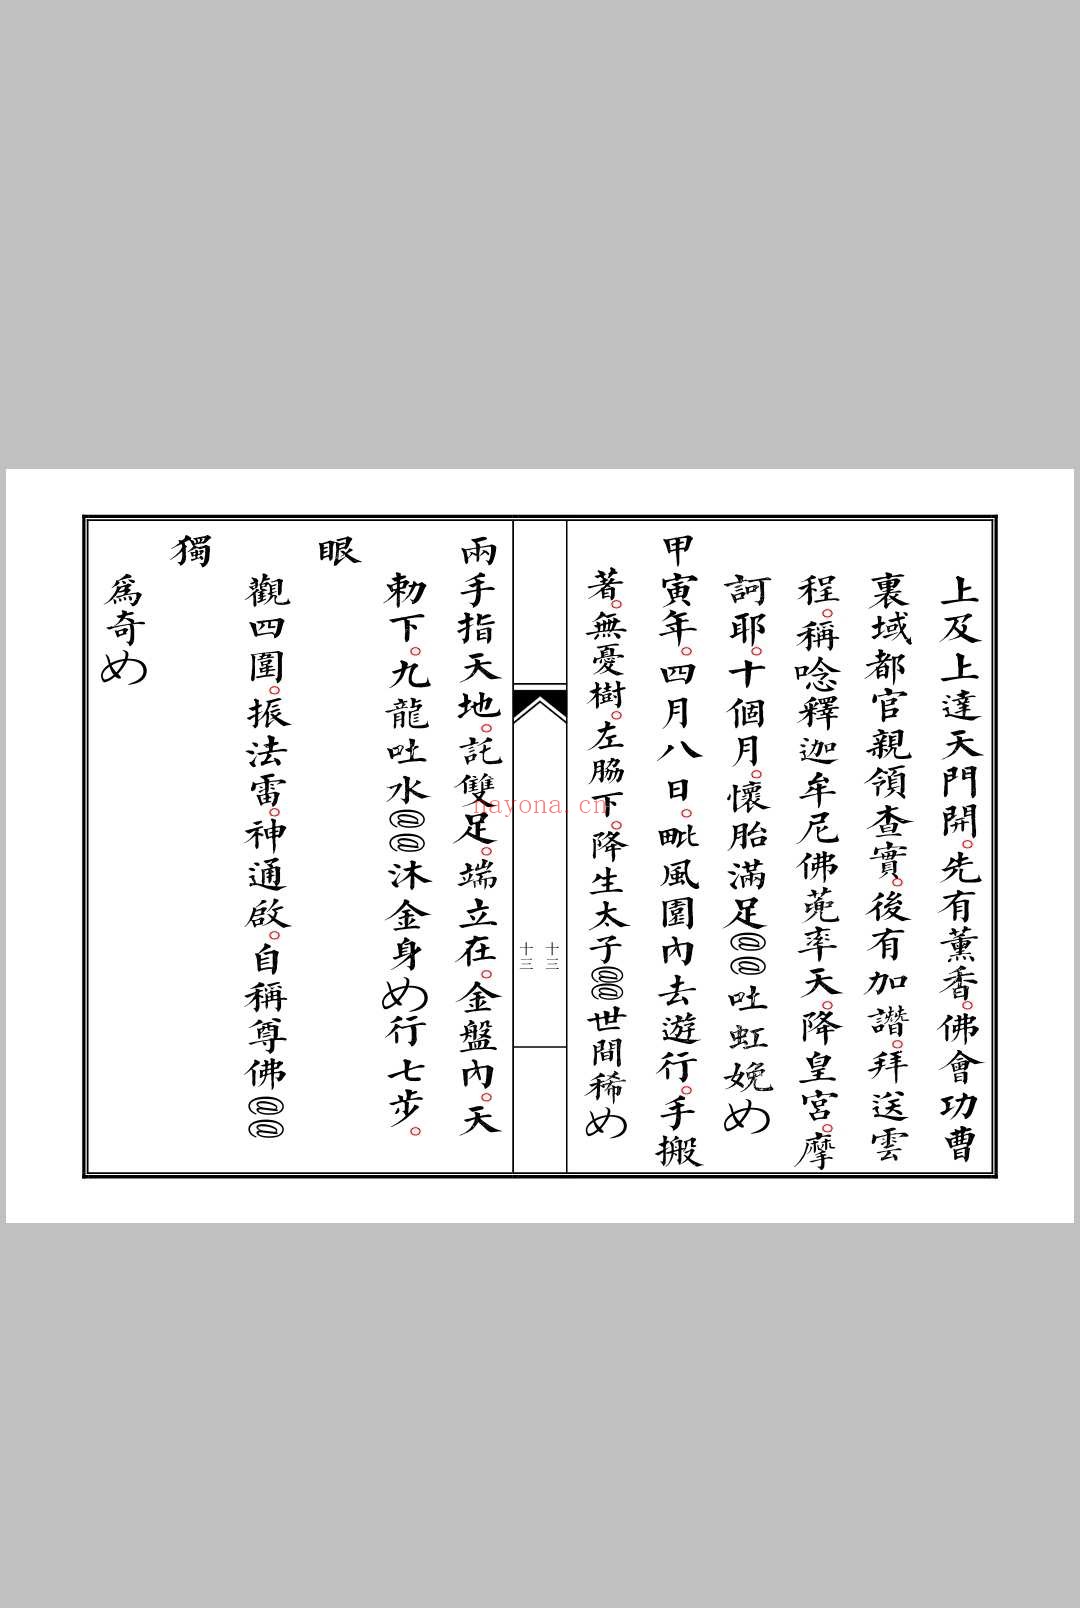 上及上達天門開。先有薰香。佛會功曹
裏域都官親領查實。後有加讚。拜送雲
程。稱唸釋迦牟尼佛蔸率天。降皇宮。摩
訶耶。十個月。懷胎滿足@@吐虹娩め
甲寅年。四月八日。毗風園內去遊行。手搬
著。無憂樹。左脇下。降生太子@@世間稀め
十三
十三
兩手指天地。託雙足。端立在。金盤內。天
勅下。九龍吐水@@沐金身め行七步。
眼
觀四圍。振法雷。神通啟。自稱尊佛@@
獨
爲奇め
nayona.cn